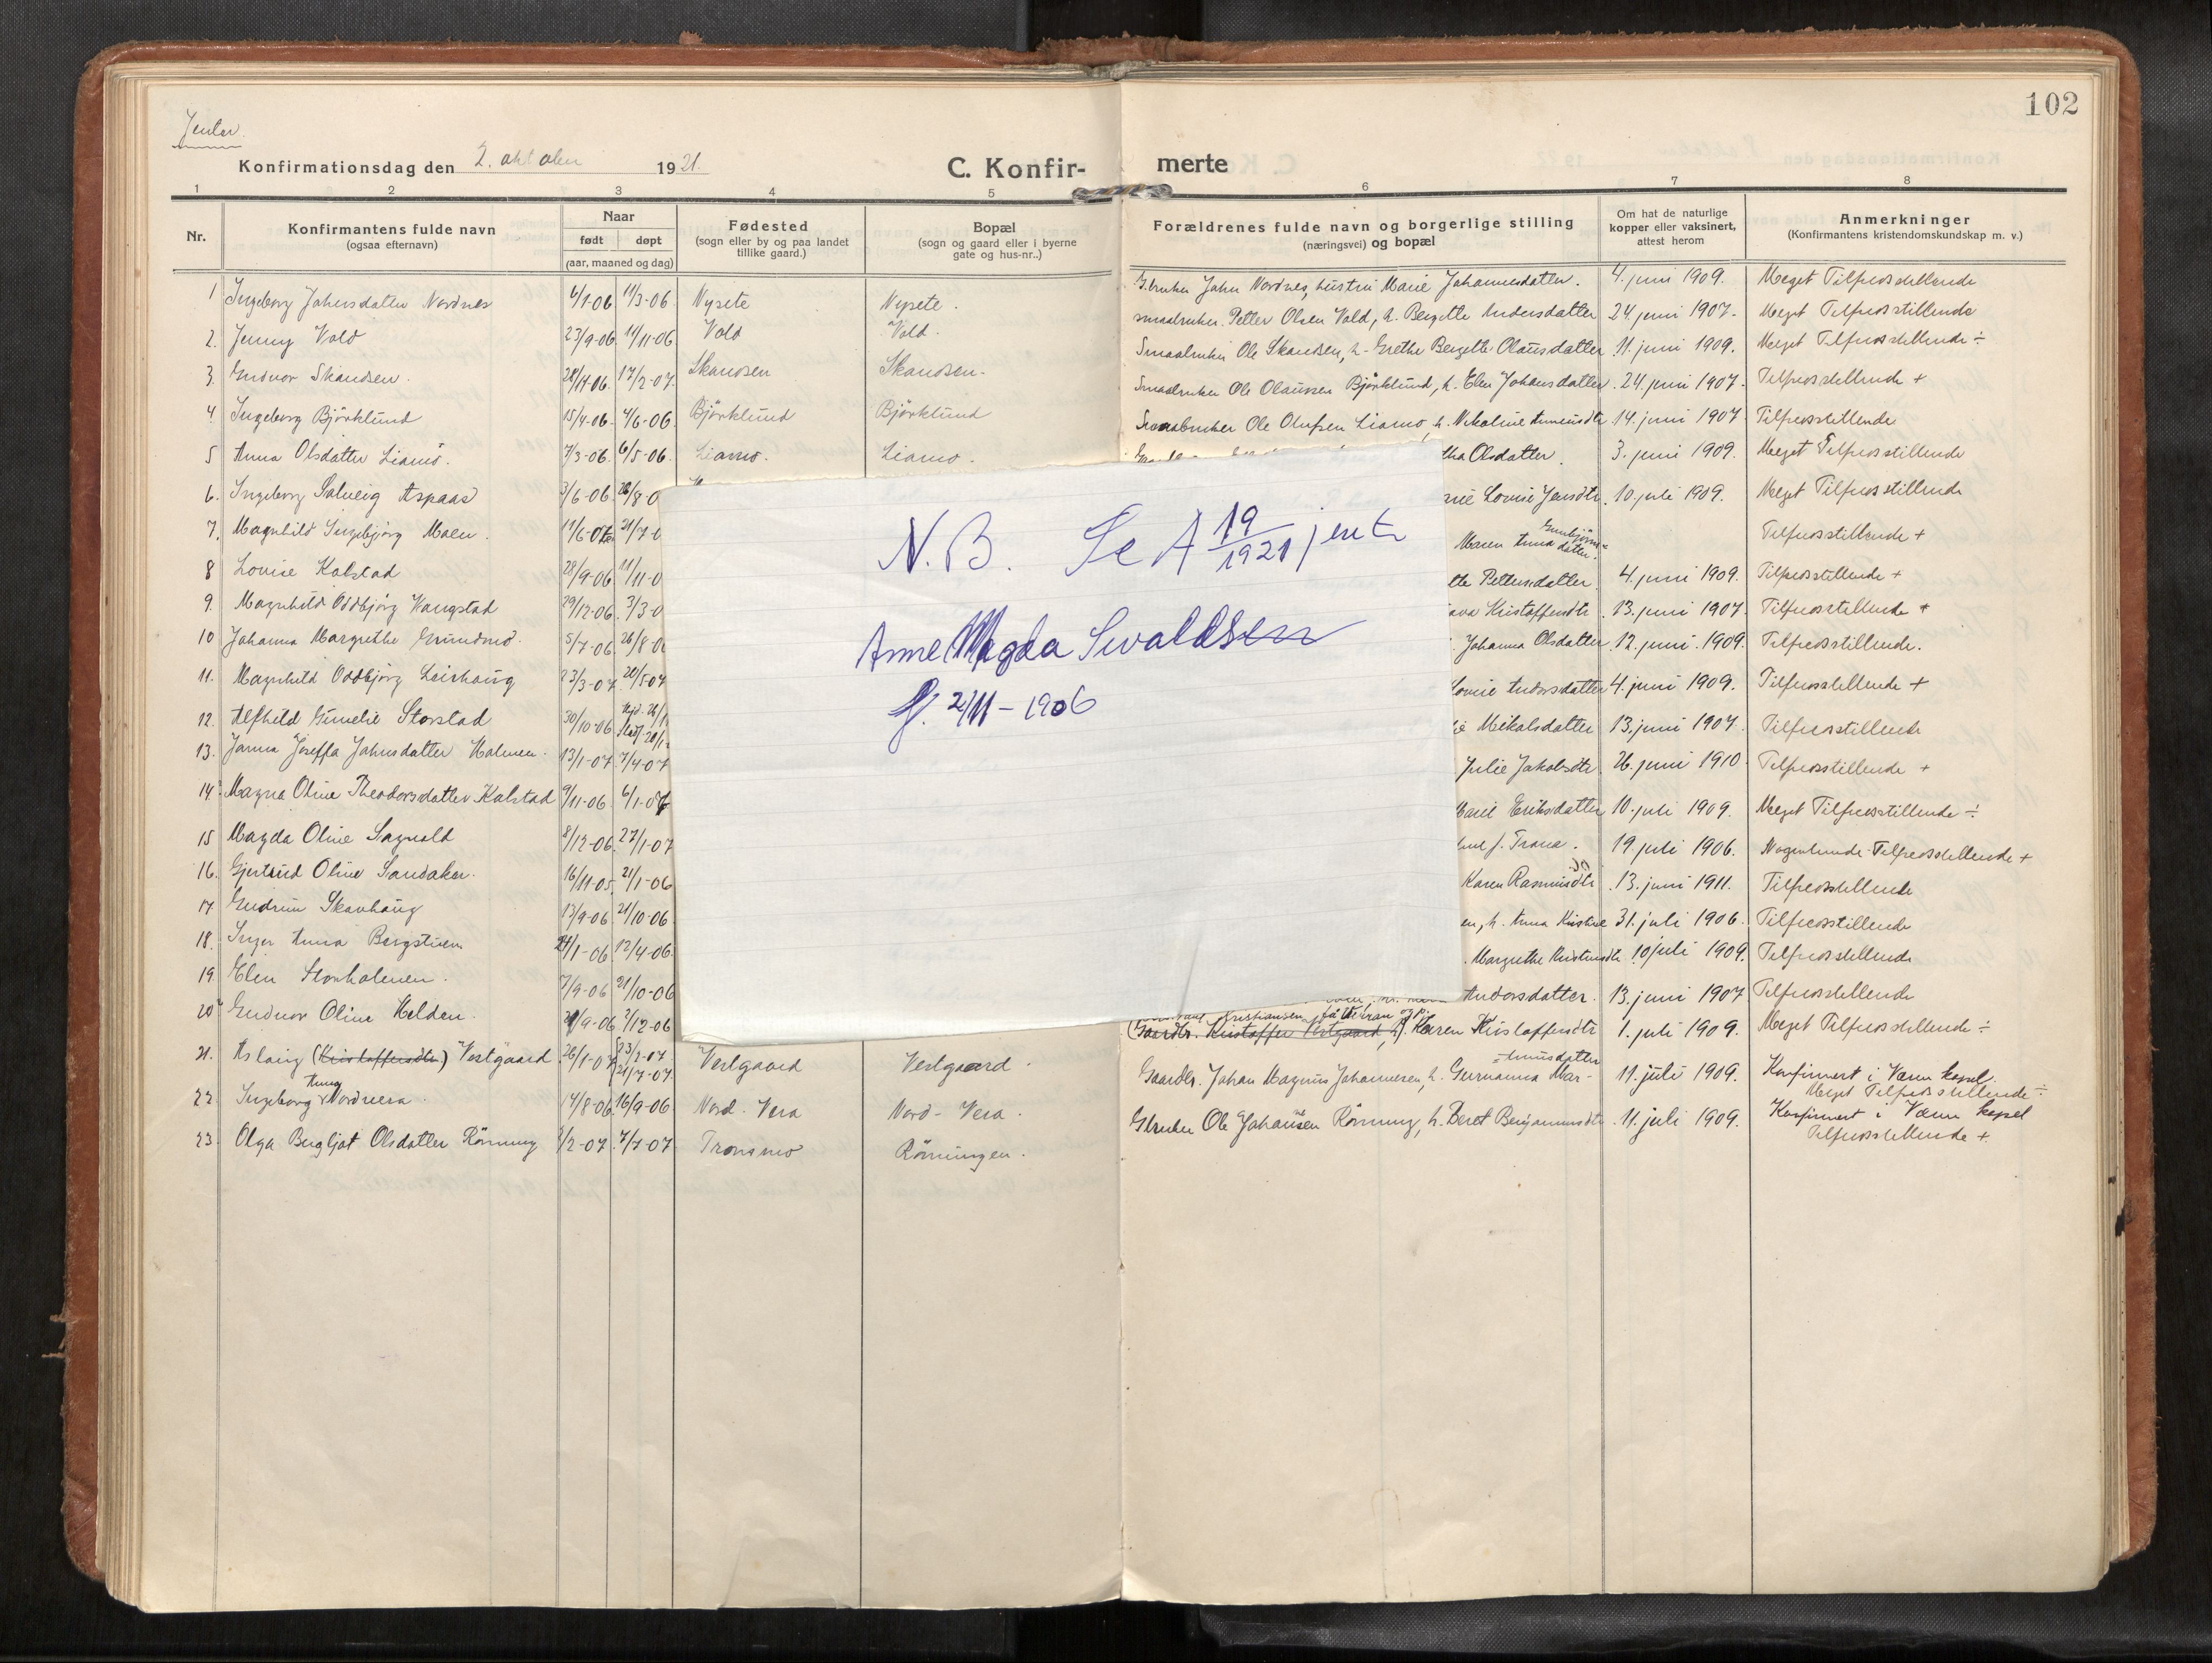 102
Jenter.
Konfirmationsdag den 2. oktober 1921.
C. Konfir- merte
1 2 3 4 5 6 7 8
Nr.
Konfirmantens fulde navn
(ogsaa efternavn)
Naar
født døpt
(aar, maaned og dag)
Fødested
(sogn eller by og paa landet
tillike gaard.)
Bopæl
(sogn og gaard eller i byerne
gate og hus-nr..)
Forældrenes fulde navn og borgerlige stilling
(næringsvei) og bopæl
Om hat de naturlige
kopper eller vaksinert,
attest herom
Anmerkninger
(Konfirmantens kristendomskundskap m. v.)
1 Ingeborg Johnsdatter Nordnes 6/1-06 11/3-06 Nysete Nysete. G.bruker John Nordnes, hustru Marie Johannesdatter. 4. juni 1909. Meget Tilfredsstillende
2. Jenny Vold 23/9-06 11/11-06 Vold Vold. Smaabruker Petter Olsen Vold, h. Bergitte Andersdatter 24 juni 1907. Meget Tilfredsstillende
3. Gudnor Skandsen. 28/11-06. 17/2-07. Skandsen Skandsen. Smaabruker Ole Skandsen, h. Grethe Bergitte Olausdatter 11. juni 1909. Meget Tilfredsstillende ÷
4. Ingeborg Björklund 15/4-06. 4/6-06 Björklund Björklund Smaabruker Ole Olaussen Björklund, h. Elen Johansdatter. 24. juni 1907. Tilfredsstillende +
5 Anna Olsdatter Liamo. 7/3-06. 6/5-06. Liamo. Liamo. Smaabruker Ole Olufsen Liamo, h. Nikoline 14. juni 1907 Tilfredsstillende
6. Ingeborg Solveig Aspaas 3/6-06. 26/8-0 Olsdatter. 3. juni 1909. Meget Tilfredsstillende
7. Magnhild Ingebjørg Moen. 11/6-0 21/7-0 Lovise Jensdtr. 10. juli 1909. Meget Tilfredsstillende
8 Lovise Kalstad 28/9-06 11/11-0 Maren Anna Gunbjörns=
datter. Tilfredsstillende +
9. Magnhild Oddbjörg Vangstad 29/12-06. 3/3-0 tte Pettersdatter 4. juni 1909. Tilfredsstillende +
10 Johanna Margrethe Grundmo. 5/7-06 26/8-0 ava Kristoffersdtr. 13. juni 1907 Tilfredsstillende +
11. Magnhild Oddbjörg Leirhaug 23/3-07. 20/5-07 Johanna Olsdatter 12. juni. 1909. Tilfredsstillende.
12. Alfhild Gunelie Storstad 30/10-06 Lovise Andersdatter 4. juni 1909. Tilfredsstillende +
13. Janna Joseffa Johnsdatter Holmen. 13/1-07 7/4-07 ie Mikalsdatter 13. juni 1907. Tilfredsstillende
14. Magna Oline Theodorsdatter Kalstad 9/11-06. 6/1-07 Julie Jakobsdtr. 26. juni 1910. Tilfredsstillende +
15 Magda Oline Sagvold 8/12-06. 27/1-07 Marit Eriksdatter 10. juli 1909. Meget Tilfredsstillende ÷
16. Gjertrud Oline Sandaker. 16/11-05. 21/1-06 f. Trana. 19 juli 1906. Nogenlunde Tilfredsstillende +
17 Gudrun Skavhaug 13/9-06 21/10-06 Karen Rasmusdtr. 13. juni 1911. Tilfredsstillende
18. Inger Anna Bergstuen 24/1-06 12/4-06. en, h. Anna Kristine 31. juli 1906. Tilfredsstillende
19 Elen Storholmen. 7/9-06 21/10-06 Margrethe 10 juli 1909. Tilfredsstillende
20 Gudnor Oline Helden. /9-06 2/12-06 Andersdatter. 13. juni 1907 Tilfredsstillende
21. Aslaug (Kristoffersdtr.) Vestgaard 26/1-07 23/2-07
21/7-07. Vestgaard Vestgaard. Kristiansen
(Gaardbr. Kristoffer Vestgaard, h). Karen Kristoffersdtr 1. juli 1909. Meget Tilfredsstillende ÷
22 Ingeborg Anna Nordvera. 14/8-06 16/9-06 Nord. Vera Nord-Vera. Gaardbr. Johan Magnus Johannesen, h. Germanna Mar-
=tinusdatter 11. juli 1909. Konfirmert i Væra kapel.
Meget Tilfredsstillende ÷
23 Olga Bergljot Olsdatter Rönning /2-07. 7/7-07 Tronsmo Rönningen. G.bruker Ole Johansen Rönning, h. Beret Benjaminsdtr. 11. juli 1909. Konfirmert i Væra kapel
Tilfredsstillende +
N.B. Se A 19/1921 jenter
Anne Magda Sivaldsen
f. 2/11-1906